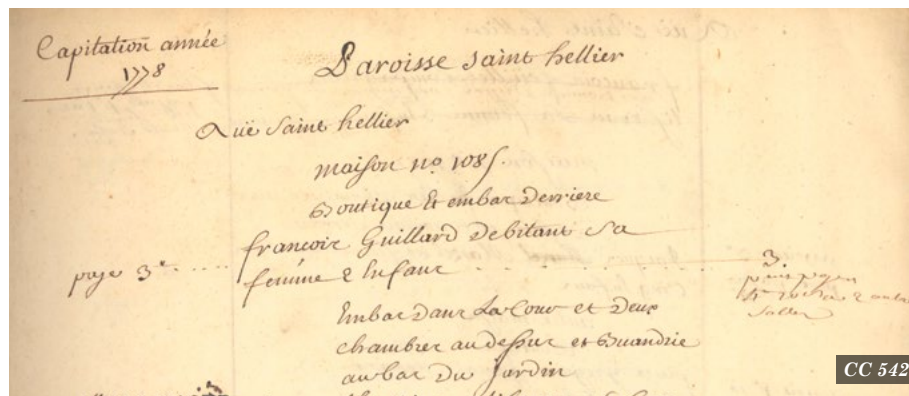 Capitation année
1778
Paroisse saint hellier
Ruë saint hellier
maison no 1085.
Boutique Et embas Derriere
francois Guillard Debitant sa
page 3e.... femme 2 Enfans .......... 3.
Embas Dans La Cour et Deux
chambres au dessus et Buandrie
au bas Du Jardin
CC 542